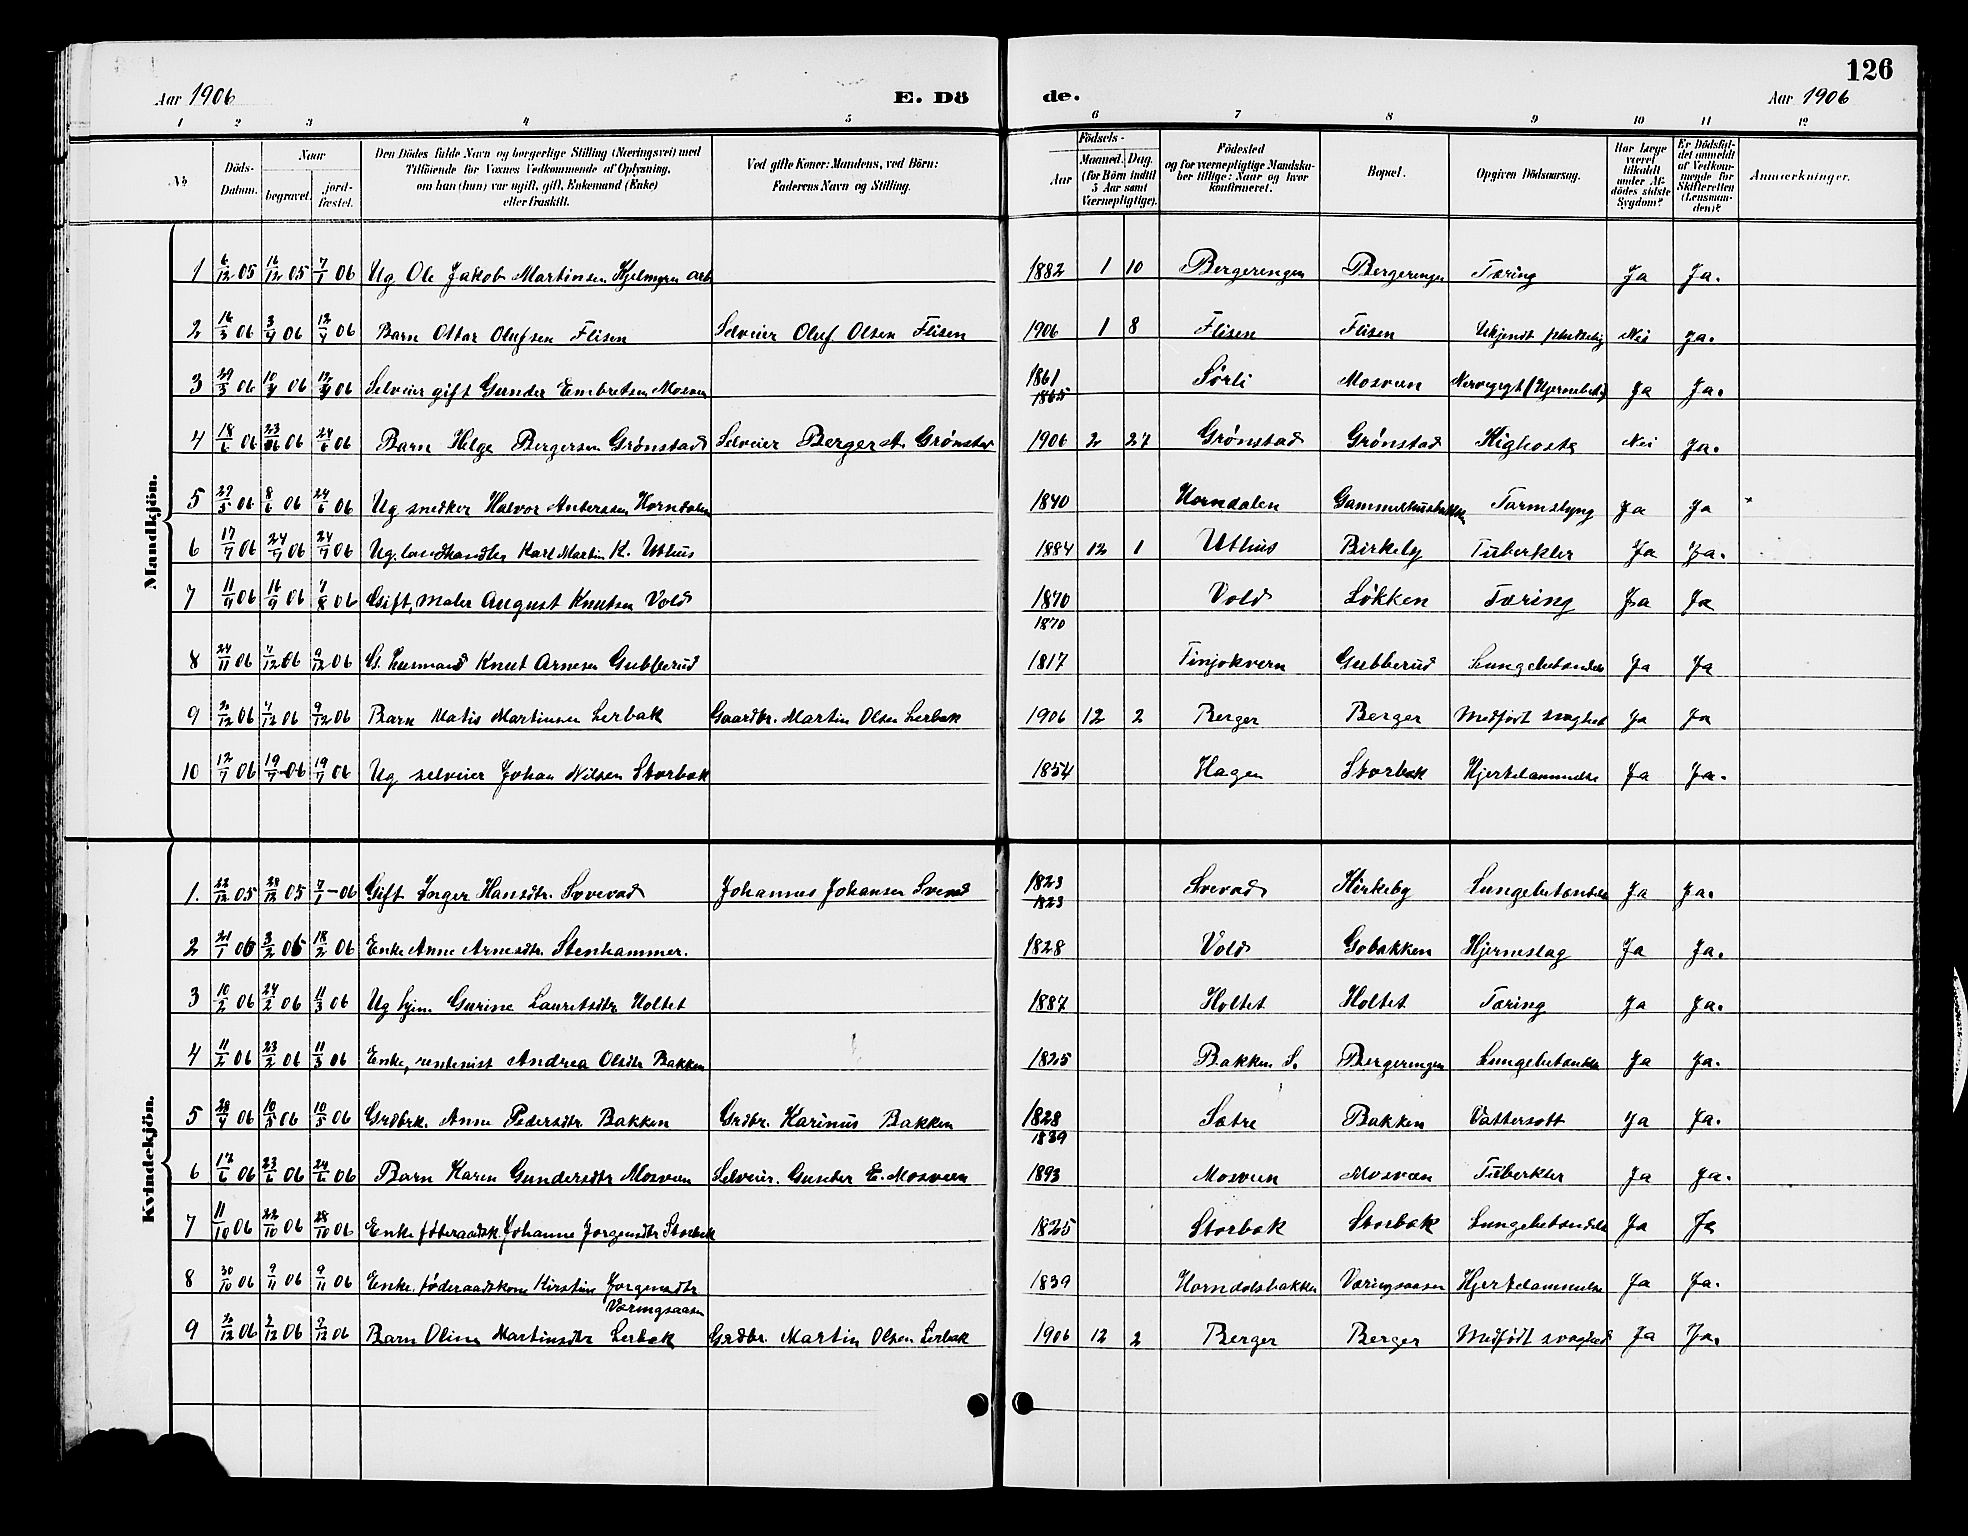 126
Aar 1906 E. Dö de. Aar 1906
1 2 3 4 5 6 7 8 9 10 11 12
No. Döds-Datum. Naar begravet. jord-fæstet. Den Dödes fulde Navn og borgerlige Stilling (Næringsvei) med Tilföiende for Voxnes Vedkommende af Oplysning, om han (hun) var ugift, gift, Enkemand (Enke) eller fraskilt. Ved gifte Koner: Mandens, ved Börn: Faderens Navn og Stilling. Födsels- Aar Maaned. Dag. (for Börn indtil 5 Aar samt Værnepligtige). Födested og for værnepligtige Mandskaber tillige: Naar og hvor konfirmeret. Bopæl. Opgiven Dödsaarsag. Har Læge været tilkaldt under Afdödes sidste Sygdom? Er Dödsfaldet anmeldt af Vedkommende for Skifteretten (Lensmanden)? Anmærkninger.
Mandkjön.
1 6/12 05 16/12 05 7/1 06 Ug. Ole Jakob Martinsen Kjelmyren arb 1882 1 10 Bergerengen Bergerengen Tæring Ja Ja.
2 16/3 06 3/4 06 12/4 06 Barn Ottar Olufsen Flisen Selveier Oluf Olsen Flisen 1906 1 8 Flisen Flisen Ukjendt pludselig Nei Ja.
3 29/3 06 10/4 06 12/4 06 Selveier gift Gunder Embretsen Mosven 1861 1865 Sörli Mosveen Ja Ja.
4 18/6 06 23/6 06 24/6 06 Barn Helge Bergersen Grønstad Selveier Berger A. Grønstad 1906 2 27 Grønstad Grønstad Kighoste Nei Ja.
5 29/5 06 8/6 06 24/6 06 Ug. snedker Halvor Anderssen Horndalen 1840 Horndalen Tarmslyng Ja Ja
6 17/7 06 24/7 06 24/7 06 Ug. landhandler Karl Martin K. Uthus 1884 12 1 Uthus Birkeby Tuberkler Ja Ja.
7 11/9 06 16/9 06 06 Gift, maler August Knutsen Vold 1870 1870 Vold Løkken Tæring Ja Ja
8 24/11 06 7/12 06 9/12 06 Knut Arnesen Gubberud 1817 Tinjokvern Gubberud Lungebetændelse Ja Ja
9 2/12 06 7/12 06 9/12 06 Barn Matis Martinsen Lerbak Gaardbr. Martin Olsen Lerbak 1906 12 2 Berger Berger Medfødt svaghed Ja Ja
10 12/7 06 19/7 06 19/7 06 Ug. selveier Johan Nilsen Storbæk 1854 Hagen Storbæk Hjertelammelse Ja Ja.
Kvindekjön.
1. 22/12 05 28/12 05 7/1 - 06 Gift Inger Hansdtr. Svevad Johannes Johansen Svevad 1823 1823 Svevad Kirkeby Lungebetændelse Ja Ja.
2 21/1 06 3/2 06 18/2 06 Enke Anne Arnesdtr. Stenhammer. 1828 Vold Gobakken Hjerneslag Ja Ja.
3 10/2 06 24/2 06 11/3 06 Ug. Gurine Lauritsdtr. Holtet 1887 Holtet Holtet Tæring Ja Ja.
4 11/2 06 23/2 06 11/3 06 Enke, rentenist Andrea Olsdtr Bakken 1825 Bakken S. Bergeringen Lungebetændelse Ja Ja.
5 28/4 06 10/5 06 10/5 06 Grdbrk. Anne Pedersdtr. Bakken Grdbr. Karinus Bakken 1828 1839 Sætre Bakken Vattersott Ja Ja.
6 17/6 06 23/6 06 24/6 06 Barn Karen Gundersdtr Mosveen Selveier. Gunder E. Mosveen 1893 Mosveen Mosveen Tuberkler Ja Ja.
7 11/10 06 22/10 06 28/10 06 Enke föderaadsk. Johanne Jorgensdtr Storbæk 1825 Storbæk Storbæk Lungebetændelse Ja Ja
8 30/10 06 9/11 06 9/11 06 Enke. föderaadskone Kirstine Jorgensdtr Væringsaasen 1839 Horndalsbakken Væringsaasen Hjertelammelse Ja Ja.
9 2/12 06 7/12 06 9/12 06 Barn Oline Martinsdtr Lerbak Grdbr. Martin Olsen Lerbak 1906 12 2 Berger Berger Medfödt svaghed Ja Ja.